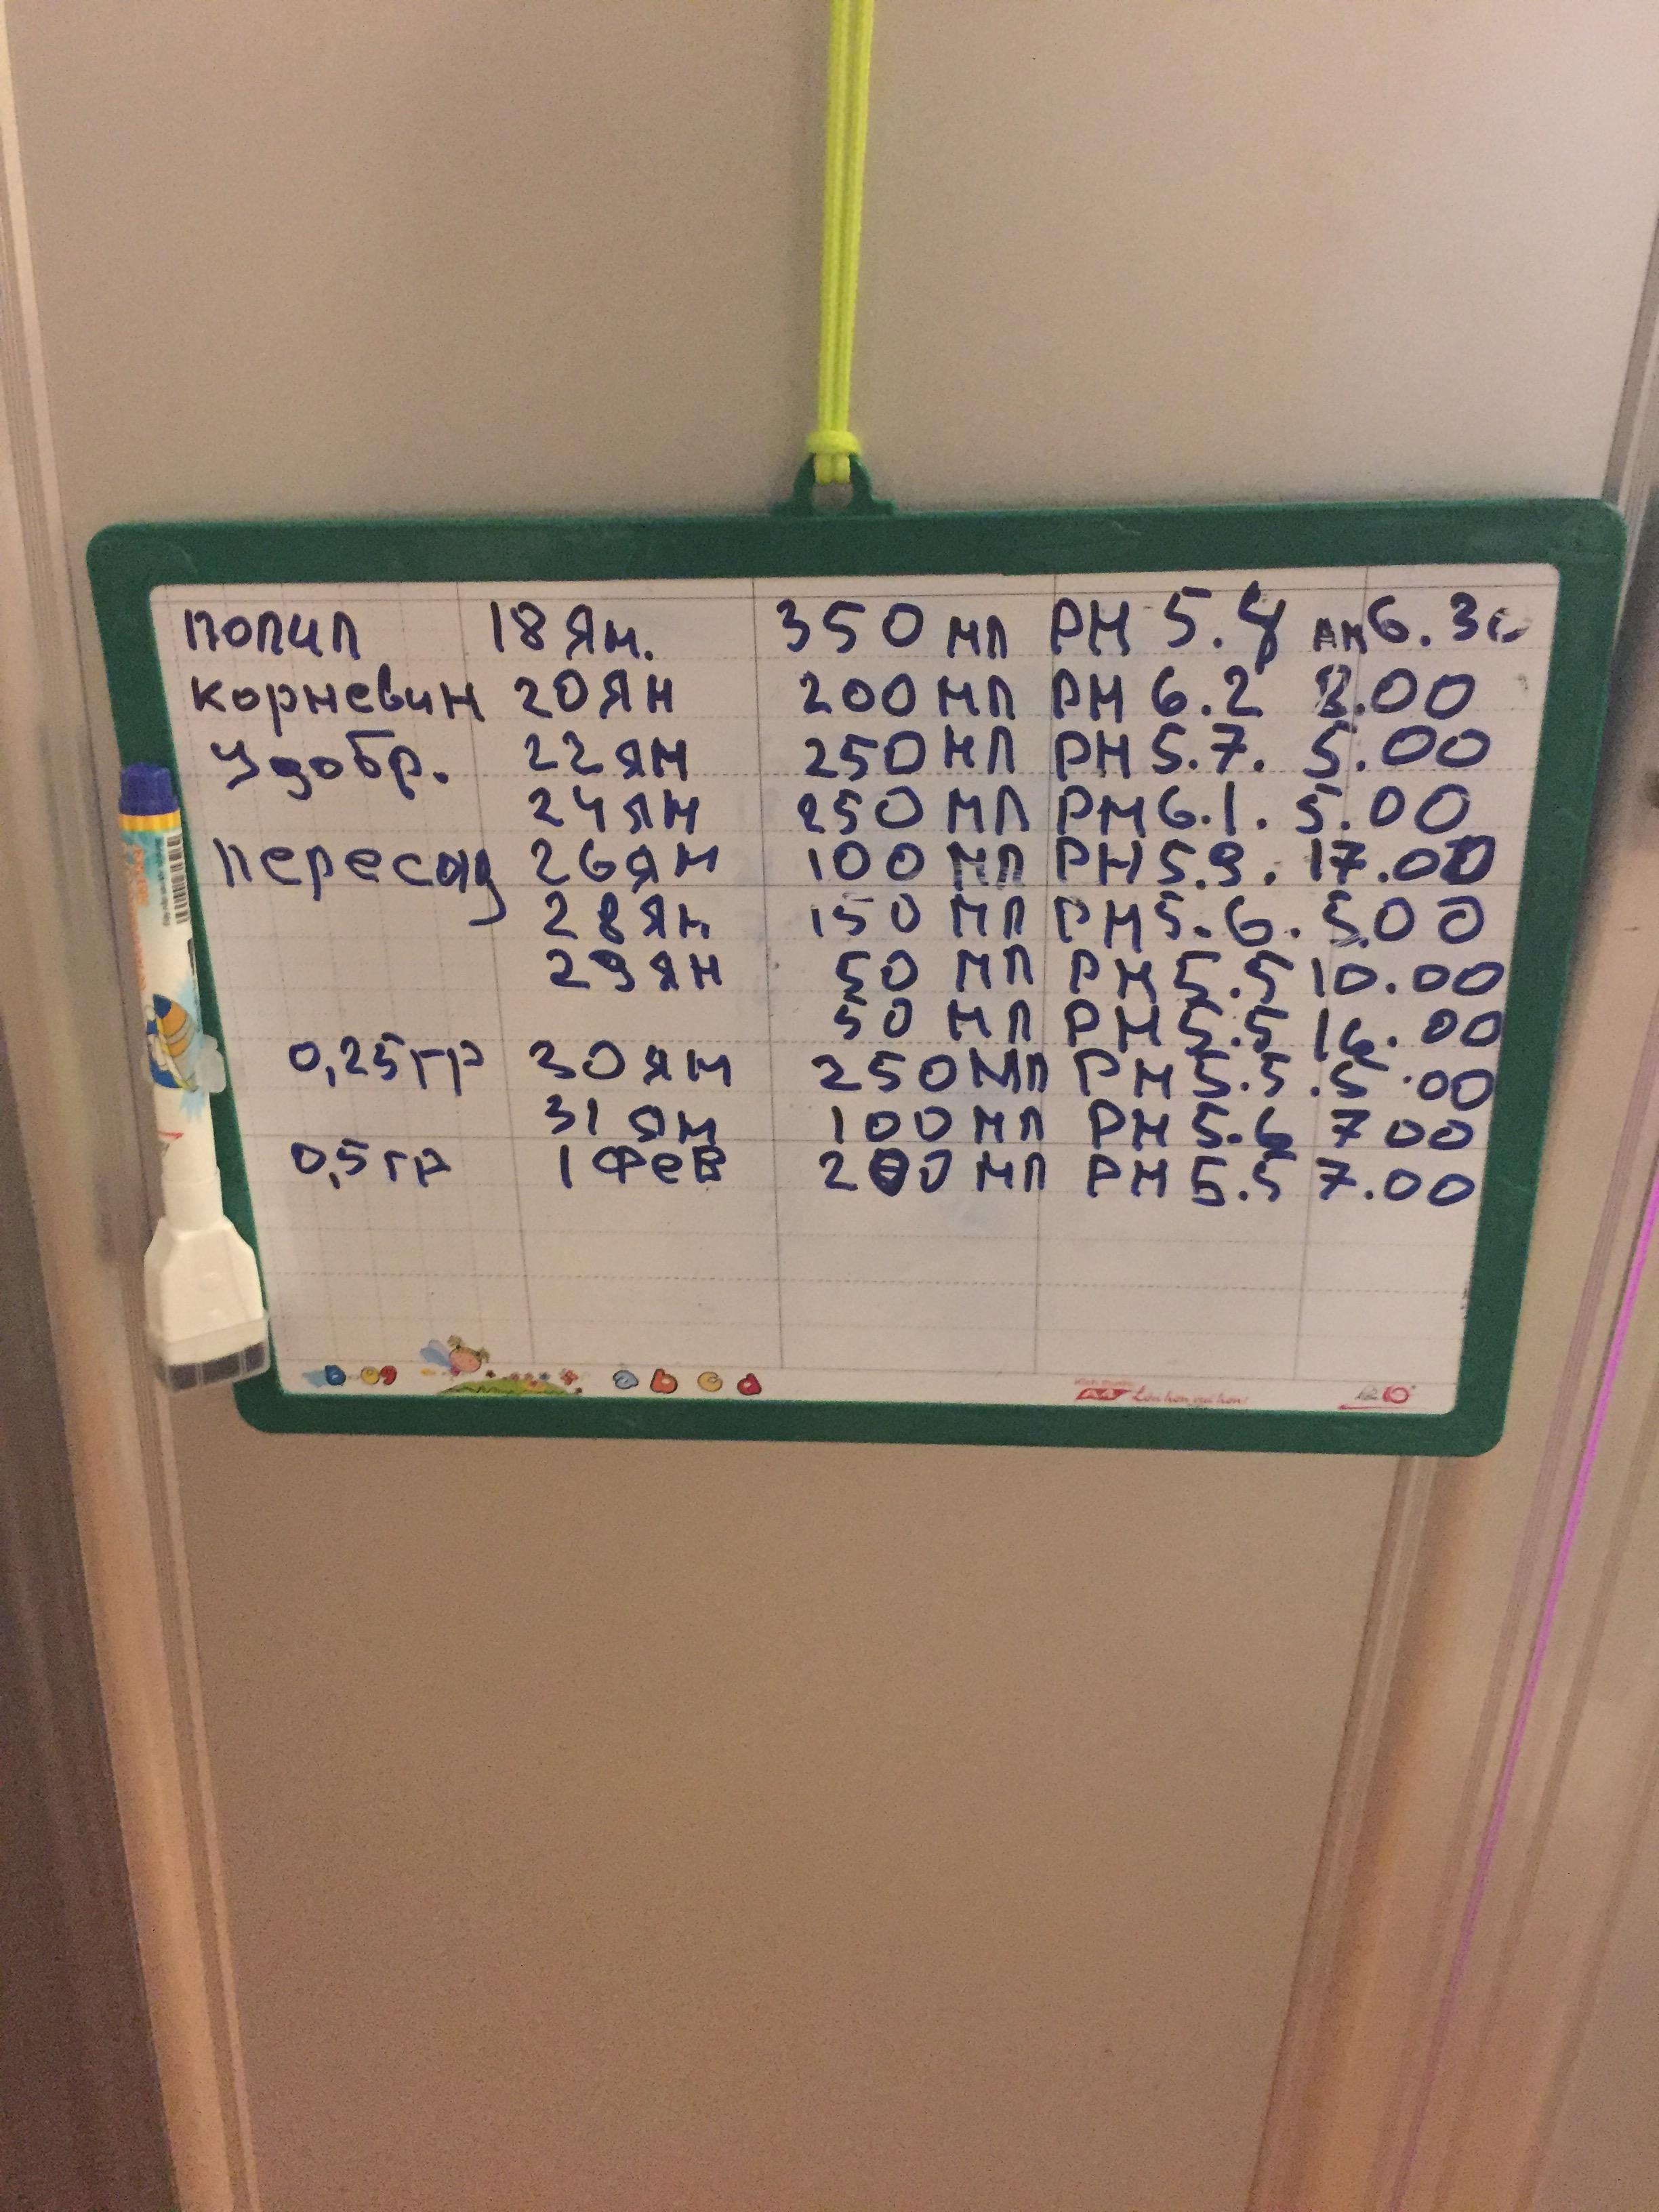 полил 18 Ян. 350 мл PH 5.8 AM 6.30
корневин 20 ЯН 200 мл PH 6.2 8.00
Удобр. 22 ЯН 250 мл PH 5.7. 5.00
24 ЯН 250 мл PH 6.1. 5.00
Пересад 26 ЯН 100 мл PH 5.9. 17.00
28 ЯН 150 мл PH 5.6. 5.00
29 ЯН 50 мл PH 5.5 10.00
50 мл PH 5.5 16.00
0,25 гр 30 ЯН 250 мл PH 5.5. 5.00
31 ЯН 100 мл PH 5.6 7 00
0,5 гр 1 Фев 200 мл PH 5.5 7.00
a b c d
Lớn hơn giá hơn!